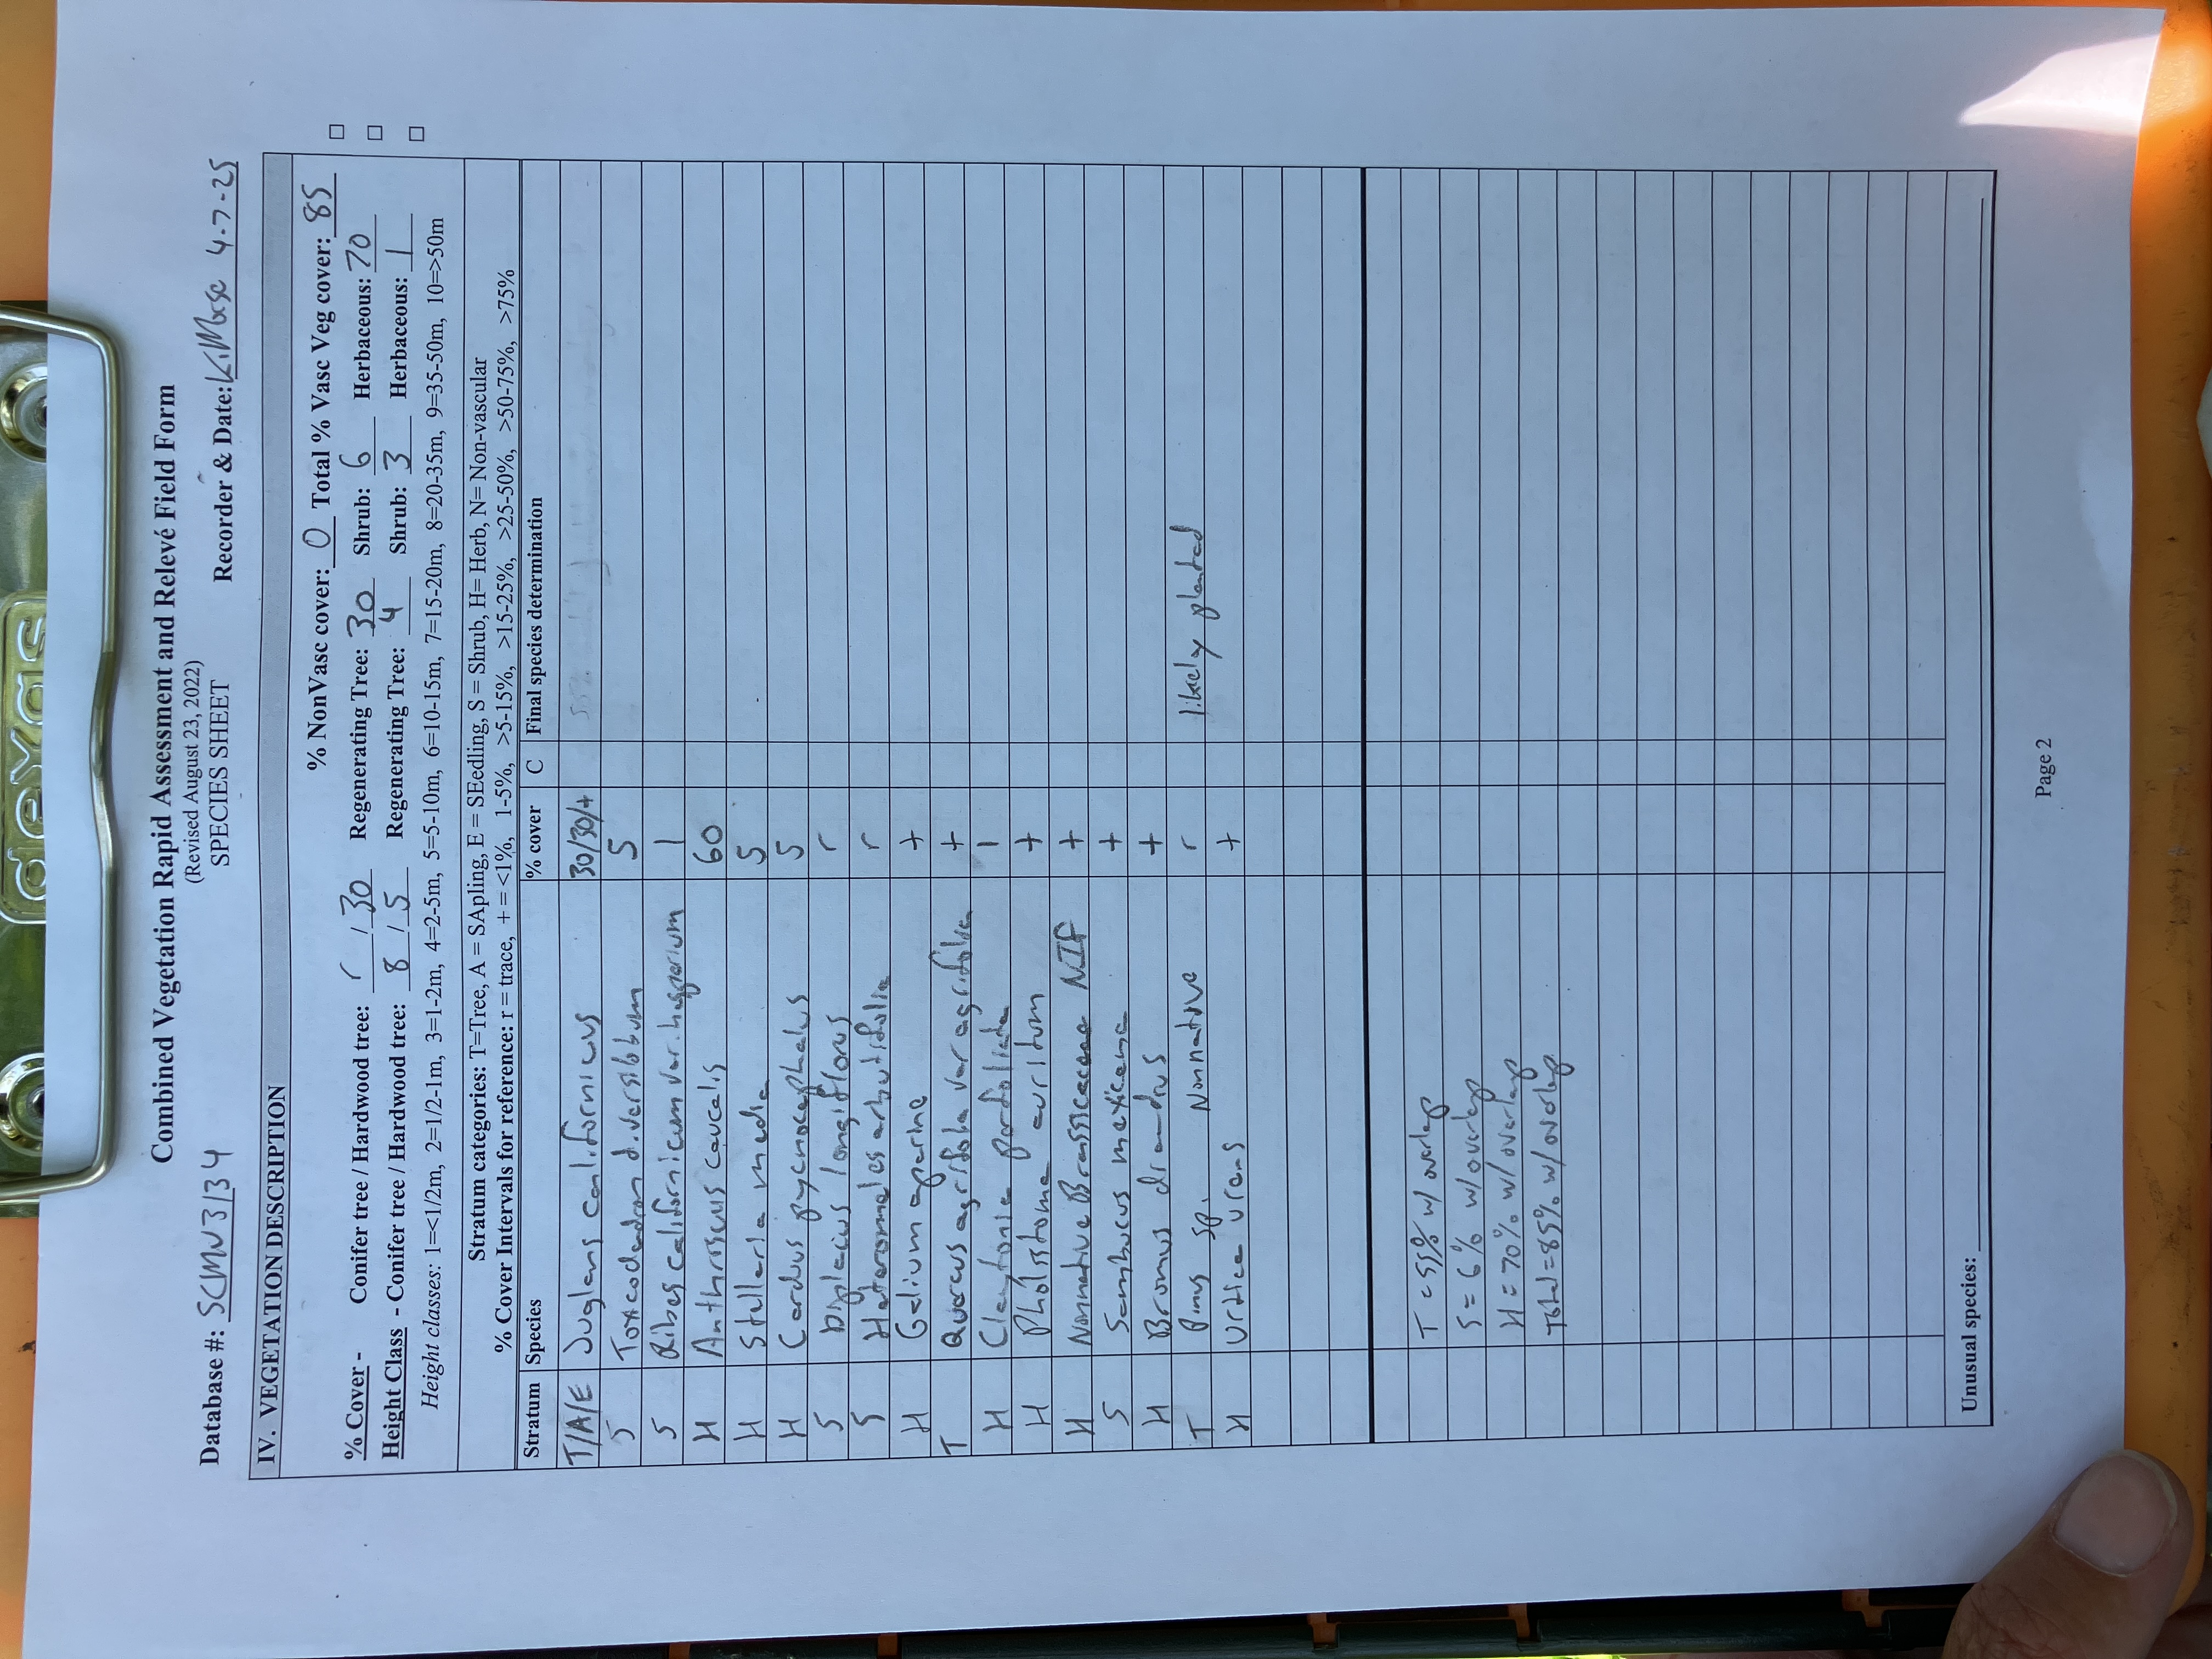 dexas
Combined Vegetation Rapid Assessment and Relevé Field Form
(Revised August 23, 2022)
SPECIES SHEET
Database #: SCMW3134 Recorder & Date: K.Morse 4-7-25
IV. VEGETATION DESCRIPTION
% NonVasc cover: 0 Total % Vasc Veg cover: 85
% Cover - Conifer tree / Hardwood tree: r / 30 Regenerating Tree: 30 Shrub: 6 Herbaceous: 70
Height Class - Conifer tree / Hardwood tree: 8 / 5 Regenerating Tree: 4 Shrub: 3 Herbaceous: 1
Height classes: 1=<1/2m, 2=1/2-1m, 3=1-2m, 4=2-5m, 5=5-10m, 6=10-15m, 7=15-20m, 8=20-35m, 9=35-50m, 10=>50m
Stratum categories: T=Tree, A = SApling, E = SEedling, S = Shrub, H= Herb, N= Non-vascular
% Cover Intervals for reference: r = trace, + = <1%, 1-5%, >5-15%, >15-25%, >25-50%, >50-75%, >75%
Stratum Species % cover C Final species determination
T/A/E Juglans californicus 30/30/+
S Toxicodendron diversilobum 5
S Ribes californicum var. hesperium 1
H Anthriscus caucalis 60
H Stellaria media 5
H Carduus pycnocephalus 5
S Diplacus longiflorus r
S Heteromeles arbutifolia r
H Galium aparine +
T Quercus agrifolia var agrifolia +
H Claytonia perfoliata 1
H Pholistoma auritum +
H Nonnative NIF +
S Sambucus mexicana +
H Bromus diandrus +
T Pinus sp. Nonnative r likely planted
H Urtica urens +
T = 55% w/ overlap
S = 6% w/ overlap
H = 70% w/ overlap
Total = 85% w/ overlap
Unusual species:
Page 2